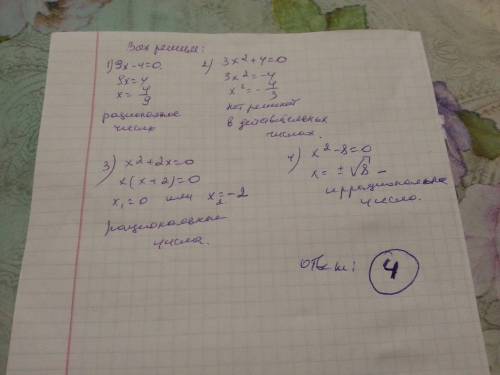 1) 9x-4=0
9x=4
x=4/9
рациональное
число
2) 3x²+4=0
3x²=-4
x²=-4/3
нет решений
в действительных
числах.
3) x²+2x=0
x(x+2)=0
x₁=0 или x₂=-2
рациональные
числа.
4) x²-8=0
x=±√8 -
иррациональные
число.
Ответ: 4